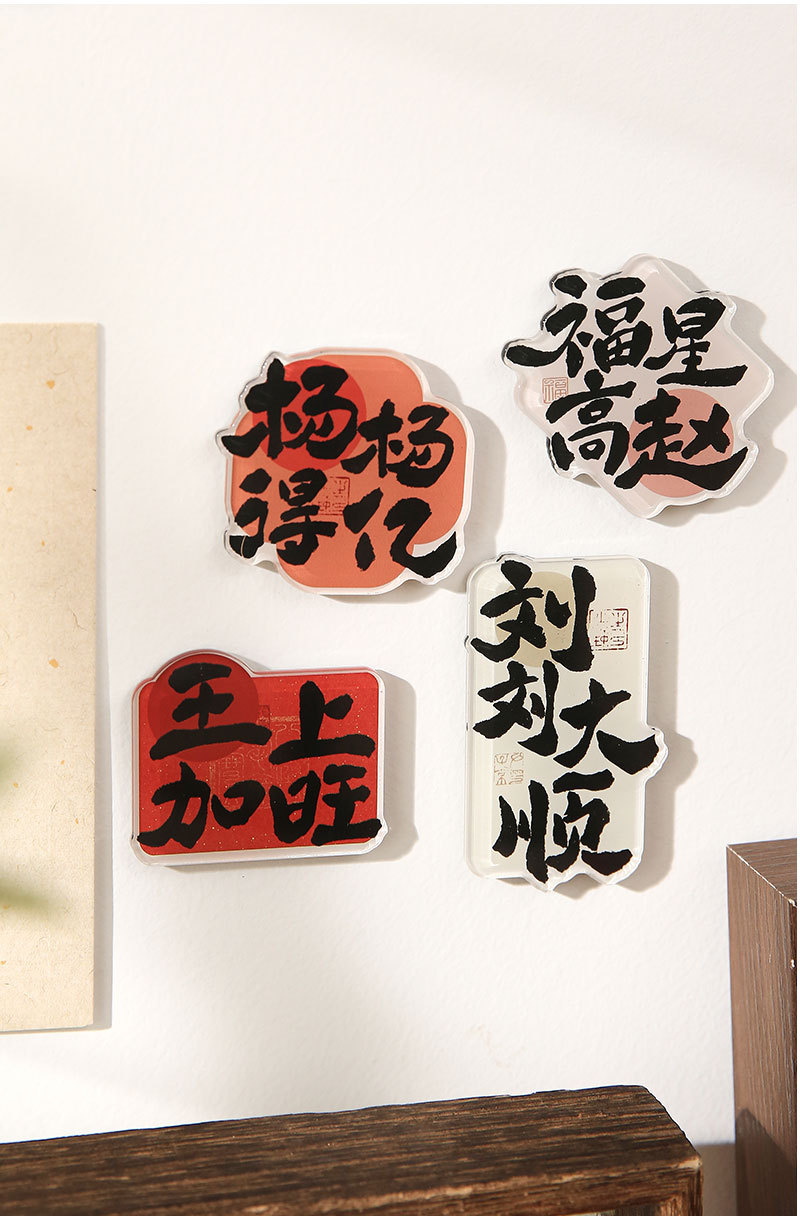 福星
高赵
杨杨
得亿
刘
刘大
顺
王上
加旺
福